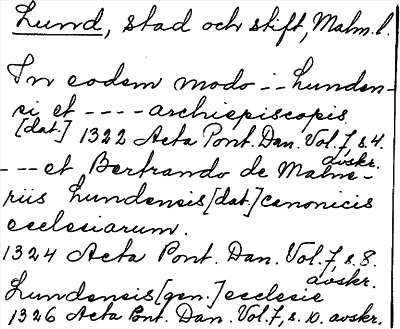 Lund, stad och stift, Malm. l.
In eodem modo - - Lunden-
si et - - - - archiepiscopis.
[dat.] 1322 Acta Pont. Dan. Vol. 7, s. 4.
avskr.
- - - et Bertrando de Malme-
riis Lundensis [dat.] canonicis
ecclesiarum.
1324 Acta Pont. Dan. Vol. 7, s. 8.
avskr.
Lundensis [gen.] ecclesie
1326 Acta Pont. Dan. Vol. 7, s. 10. avskr.